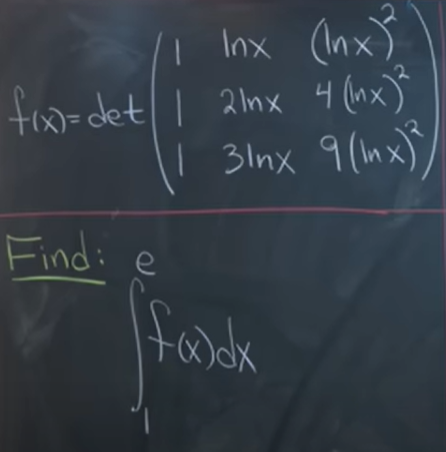 f(x)=det ( 1 lnx (lnx)²
1 2lnx 4(lnx)²
1 3lnx 9(lnx)² )
Find:
∫₁ᵉ f(x)dx